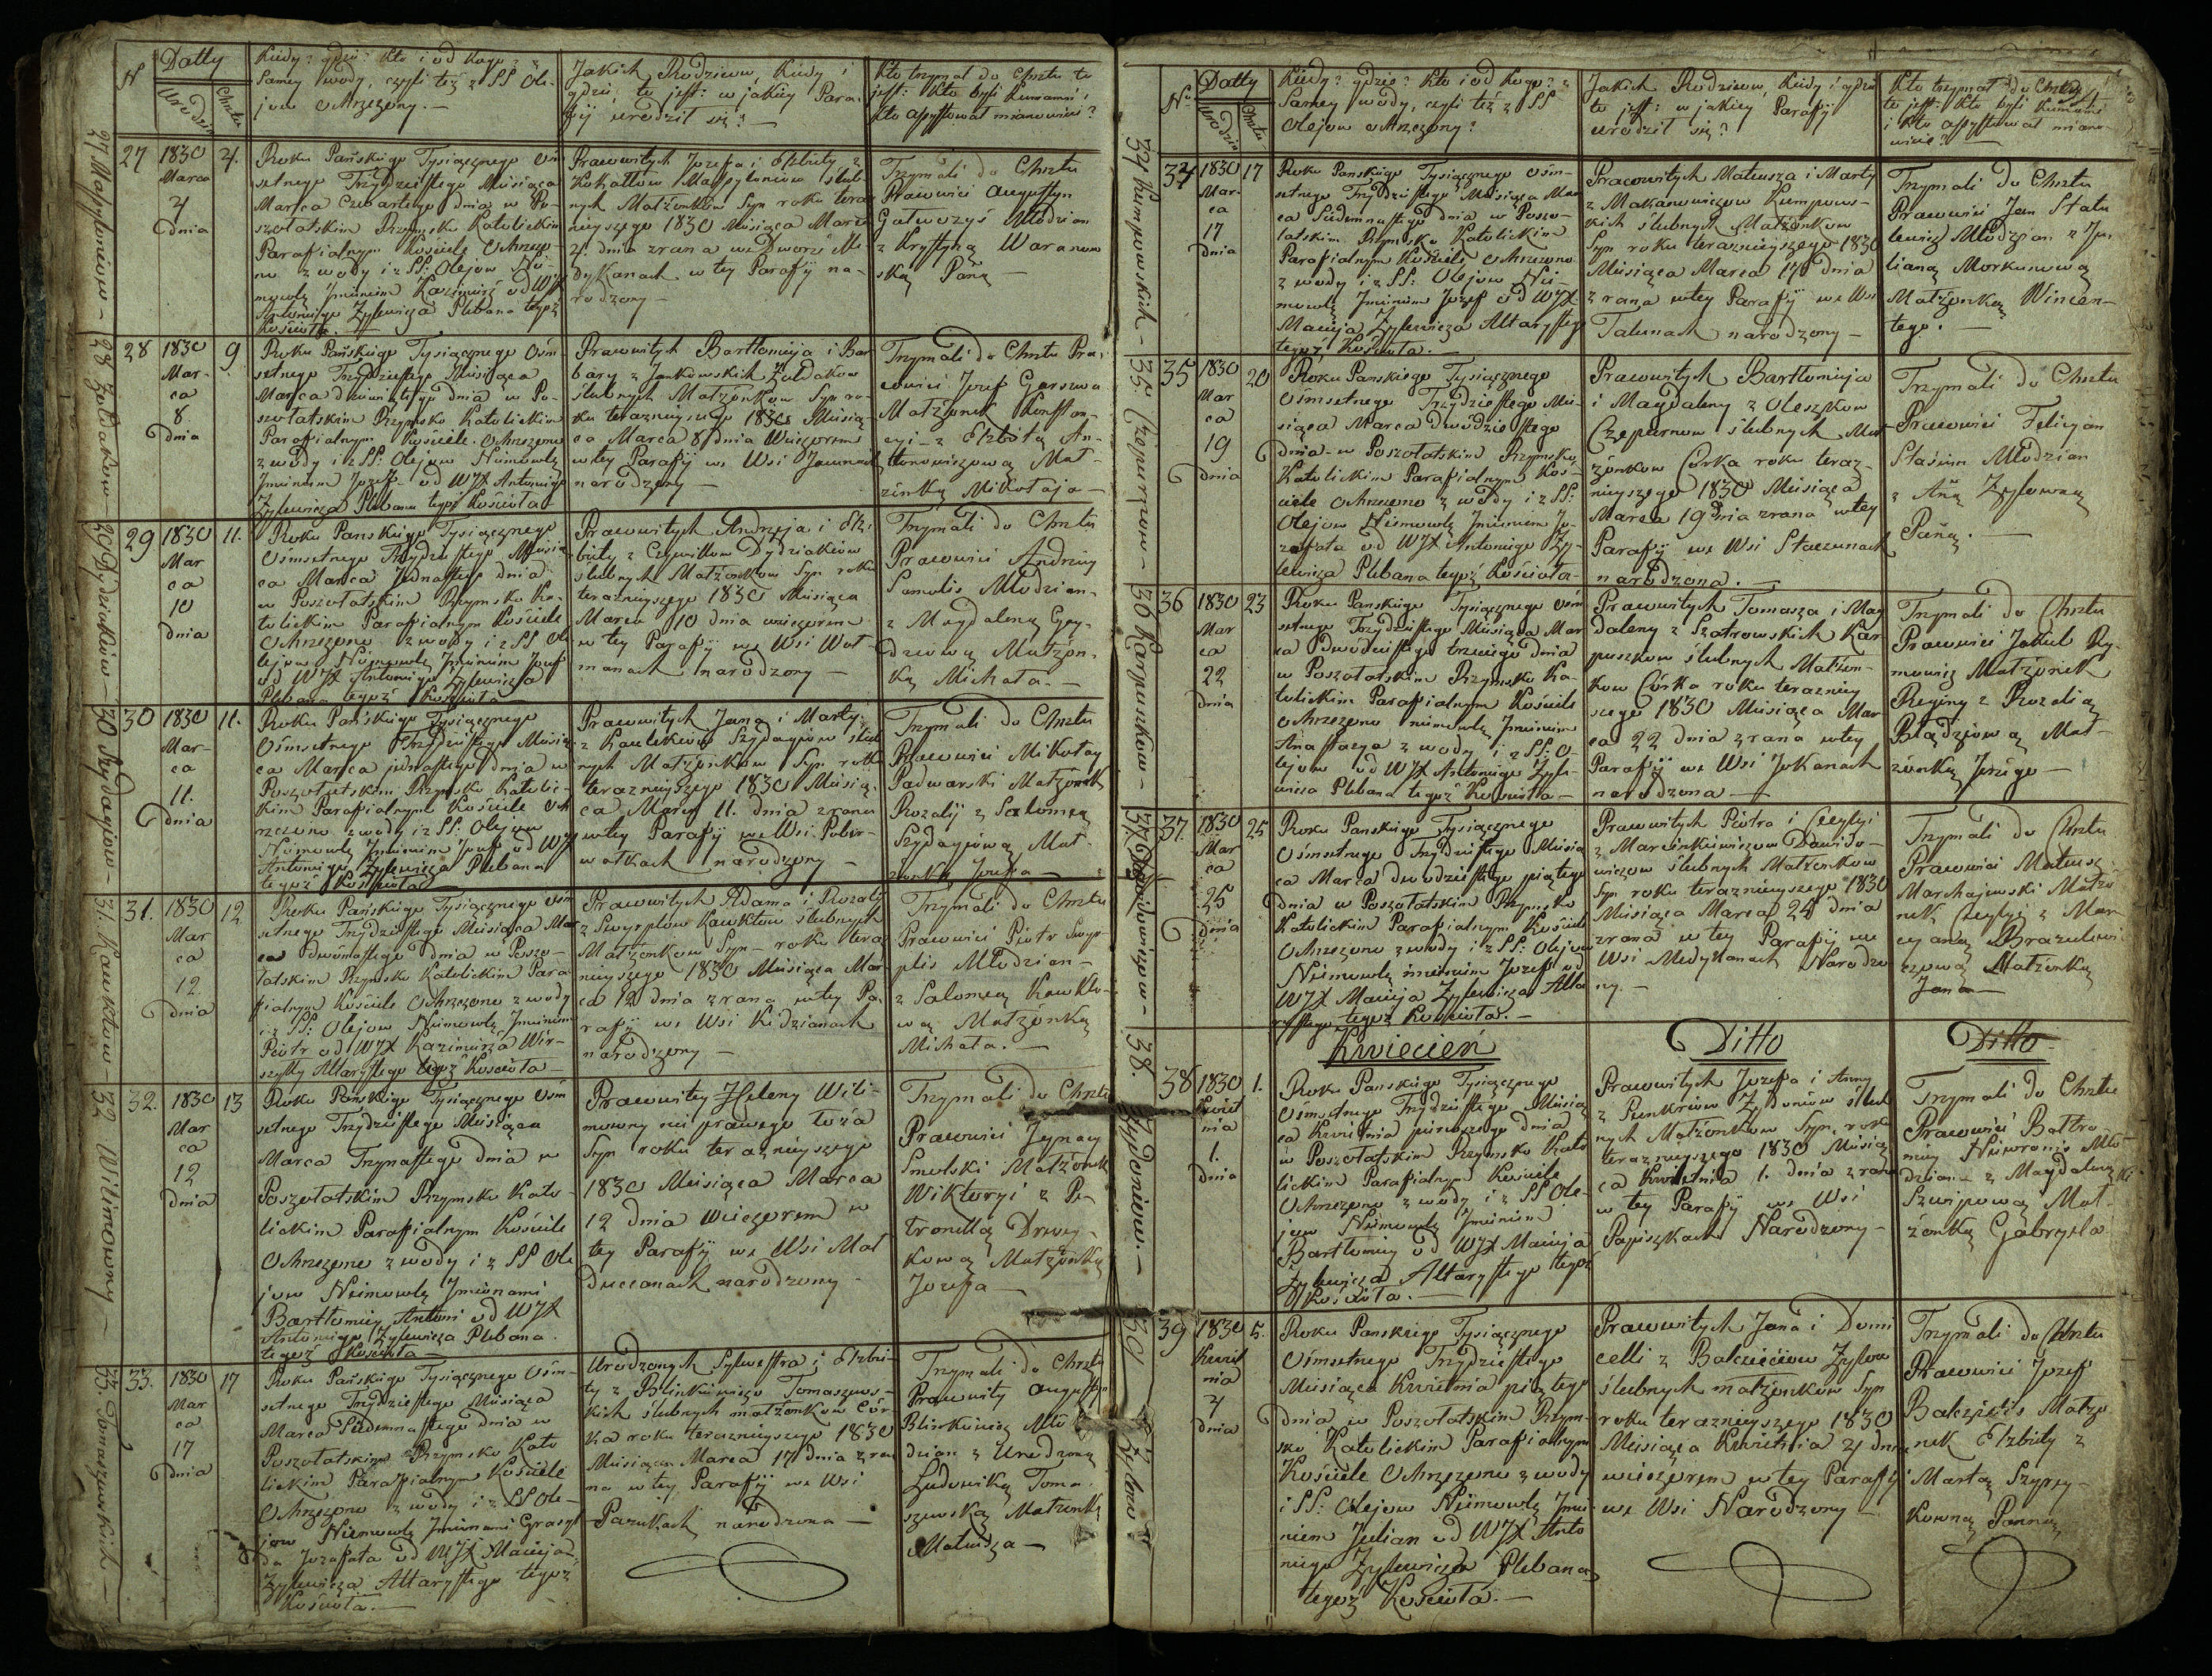 N
Datty
Urodzin
Chrztu
Kiedy? gdzie? Kto i od Kogo? z
Samey wody, czyli też z SS Ole-
jow Ochrzczony.—
Jakich Rodziców, Kiedy i
gdzie to jest: w jakiey Para-
fij urodził się?—
Kto trzymał do Chrztu to
jest: Kto byli Kumami i
Kto assystował mianowicie?
27
1830
Marca
4
dnia
4.
Roku Pańskiego Tysiącznego Ośm
setnego Trzydziestego Miesiąca
Marca Czwartego dnia w Po-
szołatskim Rzymsko Katolickim
Parafialnym Kościele Ochrzczo-
no z wody i z SS: Olejow Nie-
mowlę Jmieniem Kazimierz od WJX
Antoniego Zylewicza Plebana tegoż
Kościoła.—
Prawowitych Jozefa i Elzbiety z
nych Małżonkow Syn roku teraz
nieyszego 1830 Miesiąca Marca
4. dnia zrana we Dworze Me-
dykanach w tey Parafij na-
rodzony—
Trzymali do Chrztu
Prawowici Augustyn
Młodzian
z Krystyną Waranow
ską Panną—
28
1830
Mar-
ca
8
dnia
9
Roku Pańskiego Tysiącznego Ośm-
setnego Trzydziestego Miesiąca
Marca dziewiątego dnia w Po-
szołatskim Rzymsko Katolickim
Parafialnym Kościele Ochrzczono
z wody i z SS: Olejow Niemowlę
Jmieniem Jozef od WJX Antoniego
Zylewicza Plebana tegoż Kościoła
Prawowitych Bartłomieja i Bar
bary z Jankowskich Zuldakow
ślubnych Małżonkow Syn ro-
ku teraznieyszego 1830 Miesią
ca Marca 8 dnia Wieczorem
w tey Parafij we Wsi Jawnach
narodzony—
Trzymali do Chrztu Pra-
wowici Jozef Garszwa
Małżonek Konstan-
cyi z Elzbietą An-
tonowiczową Mał-
żonką Mikołaja—
29
1830
Mar
ca
10
dnia
11.
Roku Panskiego Tysiącznego
Ośmsetnego Trzydziestego Miesią
ca Marca Jednastego dnia
w Poszołatskim Rzymsko Ka-
tolickim Parafialnym Kościele
Ochrzczono z wody i z SS Ole
lejow Niemowlę Jmieniem Jozef
od WJX Antoniego Zylewicza
Plebana tegoż Kościoła
Prawowitych Andrzeja i Elz-
biety z Dydziakow
slubnych Małżonkow Syn roku
teraznieyszego 1830 Miesiąca
Marca 10 dnia wieczorem
w tey Parafij we Wsi Wot-
manach narodzony—
Trzymali do Chrztu
Prawowici Andrzey
Samulis Młodzian—
z Magdaleną Gey-
dzewą Małżon-
ką Michała.—
30
1830
Mar-
ca
11.
dnia
11.
Roku Pańskiego Tysiącznego
Ośmsetnego Trzydziestego Miesią
ca Marca jednastego dnia w
Poszołatskim Rzymsko Katolic-
kim Parafialnym Kościele Och
rzczono z wody i z SS: Olejow
Niemowlę Jmieniem Jozef od WJX
Antoniego Zylewicza Plebana
tegoż Kościoła
Prawowitych Jana i Marty
z Szydagiow slub
nych Małżonkow Syn roku
teraznieyszego 1830 Miesią-
ca Marca 11. dnia zrana
w tey Parafij we Wsi
narodzony—
Trzymali do Chrztu
Prawowici Mikołay
Padwarski Małżonek
Rozalij z Salomeą
Szydagiową Mał-
żonką Jozefa—
31.
1830
Mar
ca
12
dnia
12
Roku Pańskiego Tysiącznego ośm
setnego Trzydziestego Miesiąca Mar
ca dwónastego dnia w Poszo-
łatskim Rzymsko Katolickim Para
fialnym Kościele Ochrzczono z wody
i z SS: Olejow Niemowlę Jmieniem
Piotr od WJX Kazimierza Wir-
szyłły Altarystego tegoż Kościoła—
Prawowitych Adama i Rozalij
z Swyplow Kawktow slubnych
Małżonkow Syn—roku tera
nieyszego 1830 Miesiąca Mar-
ca 12 dnia zrana w tey Pa-
rafij we Wsi Kidzianach
narodzony—
Trzymali do Chrztu
Prawowici Piotr Swyp-
plis Młodzian—
z Salomeą Kawkto-
wą Małżonką
Michała.—
32.
1830
Mar
ca
12
dnia
13
Roku Pańskiego Tysiącznego Ośm
setnego Trzydziestego Miesiąca
Marca Trzynastego dnia w
Poszołatskim Rzymsko Kato-
lickim Parafialnym Kościele
Ochrzczono z wody i z SS Ole
jow Niemowlę Jmionami
Bartłomiey Antoni od WJX
Antoniego Zylewicza Plebana
tegoż Kościoła—
Prawowitey Heleny Wili-
mowny nie prawego łoża
Syn roku teraznieyszego
1830 Miesiąca Marca
12 dnia wieczorem w
tey Parafij we Wsi Mał
duccianach narodzony—
Trzymali do Chrztu
Prawowici Jgnacy
Smolski Małżonek
Wiktoryi z Pe-
tronellą Drwey-
kową Małżonką
Jozefa—
33.
1830
Mar
ca
17
dnia
17
Roku Pańskiego Tysiącznego Ośm-
setnego Trzydziestego Miesiąca
Marca Siedemnastego dnia w
Poszołatskim Rzymsko Kato
lickim Parafialnym Kościele
Ochrzczono z wody i z SS Ole-
jow Niemowlę Jmionami Grasyl
da Jozafata od WJX Macieja
Zylewicza Altarystego tegoż
Kościoła.—
Urodzonych Sylwestra i Elzbie-
ty z Blinkiewiczow Tomaszews-
kich slubnych małżonkow Cór-
ka roku teraznieyszego 1830
Miesiąca Marca 17 dnia zra
na w tey Parafij we Wsi
Pazukach narodzona—
Trzymali do Chrztu
Prawowity Augustyn
Blinkiewicz Mło
dzian z Urodzoną
Ludowiką Toma-
szewską Małżonką
Mateusza—
27 Maspyloniow — 28 Zuldakow — 29 Dydziakow — 30 Szydagiow — 31. Kawktow — 32 Wilimowny — 33 Tomaszewskich —
Nº
Datty
Urodzin
Chrztu
Kiedy? gdzie? Kto i od Kogo? z
Samey wody, czyli też z SS
Olejow Ochrzczony?
Jakich Rodziców, Kiedy i gdzie
to jest: w jakiey Parafij
urodził się?
Kto trzymał do Chrztu
to jest: Kto byli Kumami
i Kto assystował miano-
wicie?—
34
1830
Mar-
ca
17
dnia
17
Roku Panskiego Tysiącznego Ośm-
setnego Trzydziestego Miesiąca Mar
ca Siedemnastego dnia w Poszo-
łatskim Rzymsko Katolickim
Parafialnym Kościele Ochrzczono
z wody i z SS: Olejow Nie-
mowlę Jmieniem Jozef od WJX
Macieja Zylewicza Altarystego
tegoż Kościoła.—
Prawowitych Mateusza i Marty
z Makanowiczow Kumpows-
kich ślubnych Małżonkow
Syn roku teraznieyszego 1830
Miesiąca Marca 17 dnia
z rana w tey Parafij we Wsi
Talunach narodzony—
Trzymali do Chrztu
Prawowici Jan Statu
lewicz Młodzian z Ju
lianą Morkunową
Małżonką Wincen-
tego.—
35
1830
Mar
ca
19
dnia
20
Roku Panskiego Tysiącznego
Ośmsetnego Trzydziestego Mie-
siąca Marca dwódziestego
dnia w Poszołatskim Rzymsko
Katolickim Parafialnym Koś-
ciele Ochrzczono z wody i z SS:
Olejow Niemowlę Jmieniem Jo-
zefata od WJX Antoniego Zy-
lewicza Plebana tegoż Kościoła—
Prawowitych Bartłomieja
i Magdaleny z Oleszkow
Czepurnow ślubnych Mał-
żonkow Córka roku teraz-
nieyszego 1830 Miesiąca
Marca 19 dnia zrana w tey
Parafij we Wsi Staczunach
narodzona.—
Trzymali do Chrztu
Prawowici Felicyan
Stasiun Młodzian
z Anną Zylewną
Panną.—
36
1830
Mar
ca
22
dnia
23
Roku Panskiego Tysiącznego Ośm
setnego Trzydziestego Miesiąca Mar
ca dwódziestego trzeciego dnia
w Poszołatskim Rzymsko Ka-
tolickim Parafialnym Kościele
Ochrzczono niemowlę Jmieniem
Anastazya z wody i z SS: O-
lejow od WJX Antoniego Zyle-
wicza Plebana tegoż Kościoła—
Prawowitych Tomasza i Mag
daleny z Szatrowskich Kar
puszkow ślubnych Małżon-
kow Córka roku teraźniey
szego 1830 Miesiąca Mar
ca 22 dnia zrana w tey
Parafij we Wsi Jokanach
narodzona—
Trzymali do Chrztu
Prawowici Jakub Ry-
mowicz Małżonek
Reginy z Rozalią
Błądziową Mał-
żonką Jerzego—
37.
1830
Mar
ca
25
dnia
25
Roku Panskiego Tysiącznego
Ośmsetnego Trzydziestego Miesią
ca Marca dwódziestego piątego
dnia w Poszołatskim Rzymsko
Katolickim Parafialnym Kościele
Ochrzczono z wody i z SS: Olejow
Niemowlę imieniem Jozef od
WJX Macieja Zylewicza Alta
rystego tegoż Kościoła.—
Prawowitych Piotra i Cecylyi
z Marcinkiewiczow Dawido-
wiczow ślubnych Małżonkow
Syn roku teraznieyszego 1830
Miesiąca Marca 24 dnia
zrana w tey Parafij we
Wsi Medykanach Narodzo
ny.—
Trzymali do Chrztu
Prawowici Mateusz
Marchajewski Małżo
nek Cecylyi z Mar
cyanną Brazulewi
czową Małżonką
Jana—
Kwiecień
Ditto
Ditto
38
1830
Kwiet
nia
1.
dnia
1.
Roku Panskiego Tysiącznego
Ośmsetnego Trzydziestego Miesią
ca Kwietnia pierwszego dnia
w Poszołatskim Rzymsko Kato
lickim Parafialnym Kościele
Ochrzczono z wody i z SS Ole-
jow Niemowlę Jmieniem
Bartłomiey od WJX Macieja
Zylewicza Altarystego tegoż
Kościoła.—
Prawowitych Jozefa i Anny
z Punkriow Zydoniow slub
nych Małżonkow Syn roku
teraznieyszego 1830 Miesią
ca Kwietnia 1. dnia zrana
w tey Parafij we Wsi
Papiszkach Narodzony—
Trzymali do Chrztu
Prawowici Bałtro-
miey Niewronis Mło-
dzian z Magdaleną
Szwipową Mał-
żonką Gabryela
39
1830
Kwiet
nia
4
dnia
5.
Roku Panskiego Tysiącznego
Ośmsetnego Trzydziestego
Miesiąca Kwietnia piątego
dnia w Poszołatskim Rzym-
sko Katolickim Parafialnym
Kościele Ochrzczono z wody
i SS: Olejow Niemowlę Jmie
niem Julian od WJX Anto
niego Zylewicza Plebana
tegoż Kościoła.—
Prawowitych Jana i Domi
celli z Balcieciow Zylow
ślubnych małżonkow Syn
roku teraznieyszego 1830
Miesiąca Kwietnia 4 dnia
wieczorem w tey Parafij
we Wsi Narodzony—
Trzymali do Chrztu
Prawowici Jozef
Balczietis Małżo
nek Elzbiety z
Martą Szyrey-
kowną Panną—
34 Kumpowskich — 35 Czepurnow — 36 Karpuszkow — 37. Dawidowiczow — 38. Zydoniow. — 39 Zylow